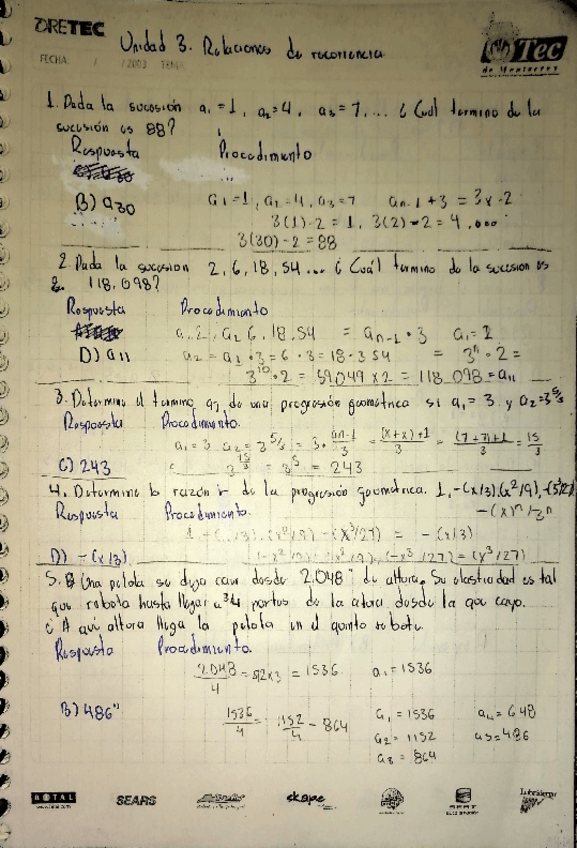 DRETEC
Unidad 3. Relaciones de recurrencia
FECHA: / /2003 TEMA
Tec
de Monterrey
1. Dada la sucesión a₁ = 1, a₂ = 4, a₃ = 7, ... ¿Cuál termino de la
sucesión es 88?
Respuesta Procedimiento
B) a30 a₁=1, a₂=4, a₃=7 an-1 + 3 = 3x-2
3(1)-2 = 1, 3(2)-2 = 4, ...
3(30)-2 = 88
2. Dada la sucesion 2, 6, 18, 54 ... ¿Cuál termino de la sucesion es
118,098?
Respuesta Procedimiento
a₁ 2, a₂ 6, 18, 54 = an-1 · 3 a₁ = 2
D) a11 a₂ = a₁ · 3 = 6 · 3 = 18 · 3 54 = 3ⁿ · 2 =
3¹⁰ · 2 = 59,049 x 2 = 118,098 = a11
3. Determina el termino a₇ de una progresión geometrica si a₁ = 3 y a₂ = 3^5/3
Respuesta Procedimiento.
a₁ = 3 a₂ = 3^5/3 = 3 · = (x+x)+1/3 = (7+7)+1/3 = 15/3
C) 243 3^15/3 = 3⁵ = 243
4. Determina la razón r de la progresión geometrica. 1, -(x/3), (x²/9), -(x³/27)
Respuesta Procedimiento. -(x)ⁿ/3ⁿ
-(x³/27) = -(x/3)
D) -(x/3) (-x³/27) = (x³/27)
5. Una pelota se deja caer desde 2,048" de altura. Su elasticidad es tal
que rebota hasta llegar a 3/4 partes de la altura desde la que cayo.
¿A qué altura llega la pelota en el quinto rebote.
Respuesta Procedimiento.
2048/4 = 512x3 = 1536 a₁ = 1536
B) 486" 1536/4 = 1152/4 - 864 a₁ = 1536 a₄ = 648
a₂ = 1152 a₅ = 486
a₃ = 864
TOTAL SEARS skape SEAT